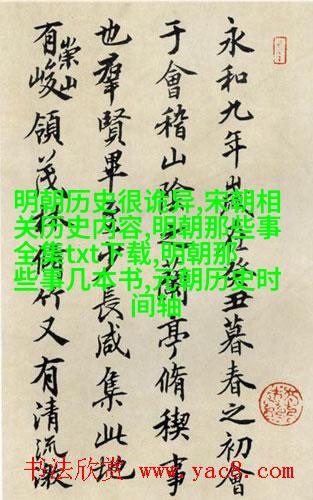 永和九年歲在癸丑暮春之初會
于會稽山陰之蘭亭脩稧事
也羣賢畢至少長咸集此地
有崇山峻領茂林脩竹又有清流激
明朝历史很诡异,宋朝相
关历史内容,明朝那些事
全集txt下载,明朝那
些事几本书,元朝历史时
间轴
书法欣赏 www.yac8.com